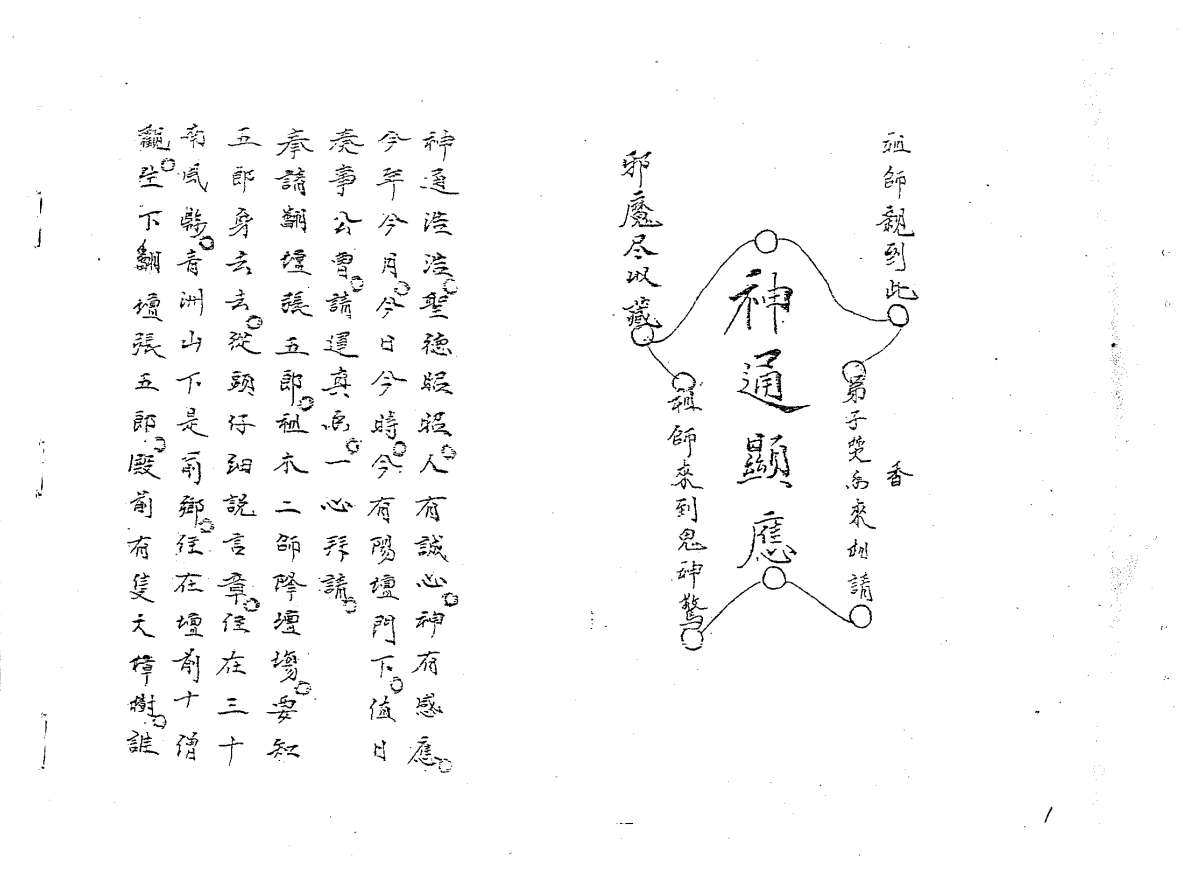 祖師親到此
香
弟子焚香來相請
神通顯應
祖師來到鬼神驚
邪魔尽收藏
1
神通浩浩。聖德昭昭。人有誠心。神有感應。
今年今月。今日今時。今有陽壇門下。值日
奏事公曹。請運真香。一心拜請。
奉請翻壇張五郎。祖本二師降壇場。要知
五郎身去去。從頭仔細說言章。住在三十
南風縣。青洲山下是前鄉。住在壇前十僧
觀。坐下翻壇張五郎。殿前有隻大樟樹。誰